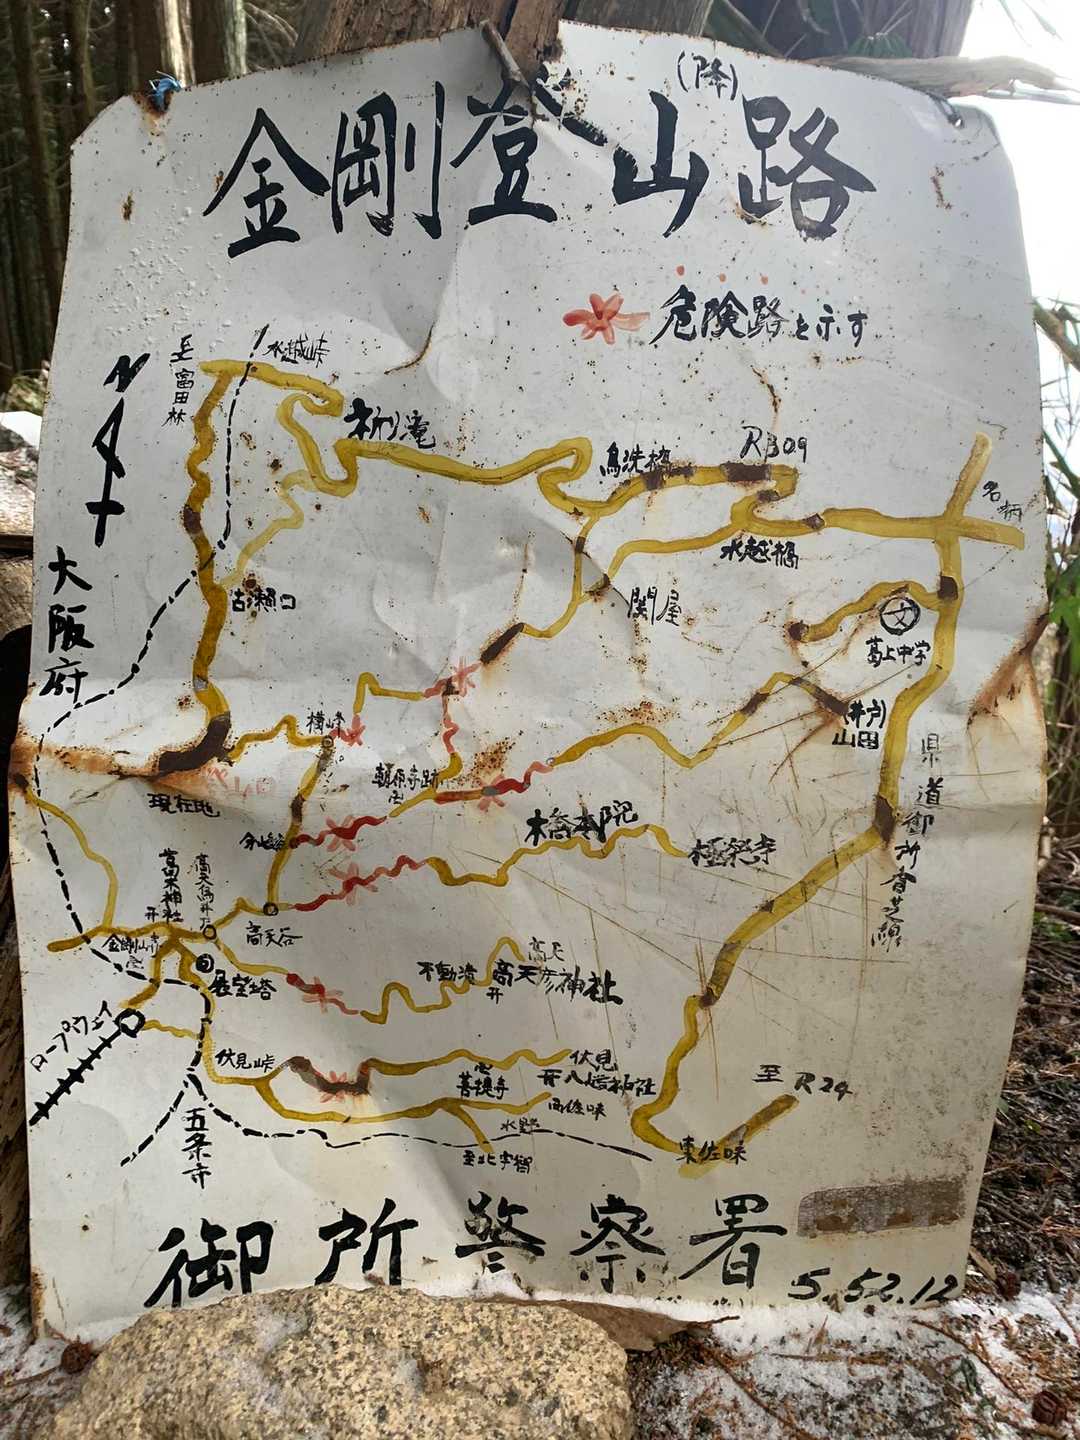 (降)
金剛登山路
危険路を示す
至富田林
水越峠
祈り滝
鳥洗橋
R309
名柄
水越橋
大阪府
古瀬口
関屋
文
葛上中学
(井戸)
山田
横峰
現在地
朝原寺跡
卍
県道御所香芝線
橋本院
極楽寺
葛木神社
高天谷
金剛山寺
卍
展望塔
高天
不動滝
高天彦神社
ロープウェイ
伏見峠
伏見
八幡神社
菩提寺
高佐味
水野
至北宇智
至R24
東佐味
五条寺
御所警察署
S.52.12